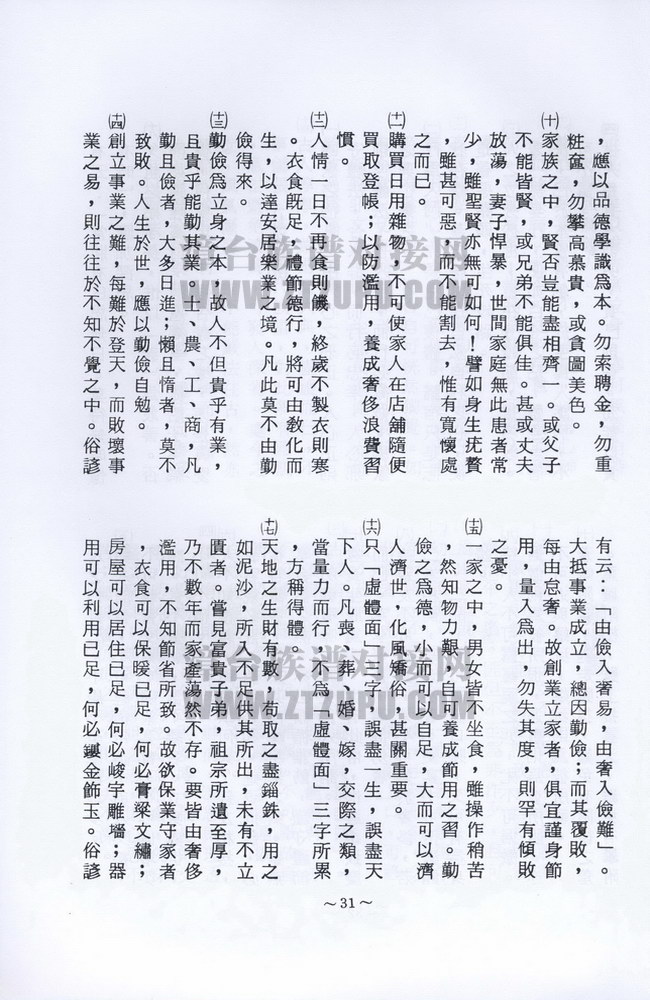 ，應以品德學識為本。勿索聘金，勿重
粧奩，勿攀高慕貴，或貪圖美色。
㈩家族之中，賢否豈能盡相齊一。或父子
不能皆賢，或兄弟不能俱佳。甚或丈夫
放蕩，妻子悍暴，世間家庭無此患者常
少，雖聖賢亦無可如何！譬如身生疣贅
，雖甚可惡，而不能割去，惟有寬懷處
之而已。
(十一)購買日用雜物，不可使家人在店舖隨便
買取登帳；以防濫用，養成奢侈浪費習
慣。
(十二)人情一日不再食則饑，終歲不製衣則寒
。衣食既足，禮節德行，將可由教化而
生，以達安居樂業之境。凡此莫不由勤
儉得來。
(十三)勤儉為立身之本，故人不但貴乎有業，
且貴乎能勤其業。士、農、工、商，凡
勤且儉者，大多日進；懶且惰者，莫不
致敗。人生於世，應以勤儉自勉。
(十四)創立事業之難，每難於登天，而敗壞事
業之易，則往往於不知不覺之中。俗諺
有云：「由儉入奢易，由奢入儉難」。
大抵事業成立，總因勤儉；而其覆敗，
每由怠奢。故創業立家者，俱宜謹身節
用，量入為出，勿失其度，則罕有傾敗
之憂。
(十五)一家之中，男女皆不坐食，雖操作稍苦
，然知物力艱，自可養成節用之習。勤
儉之為德，小而可以自足，大而可以濟
人濟世，化風矯俗，甚關重要。
(十六)只「虛體面」三字，誤盡一生，誤盡天
下人。凡喪、葬、婚、嫁，交際之類，
當量力而行，不為「虛體面」三字所累
，方稱得體。
(十七)天地之生財有數，苟取之盡錙銖，用之
如泥沙，所入不足供其所出，未有不立
匱者。嘗見富貴子弟，祖宗所遺至厚，
乃不數年而家產蕩然不存。要皆由奢侈
濫用，不知節省所致。故欲保業守家者
，衣食可以保暖已足，何必膏粱文繡；
房屋可以居住已足，何必峻宇雕墻；器
用可以利用已足，何必鏤金飾玉。俗諺
～31～
章台族谱对接网
WWW.ZTZUPU.COM
章台族谱对接网
WWW.ZTZUPU.COM